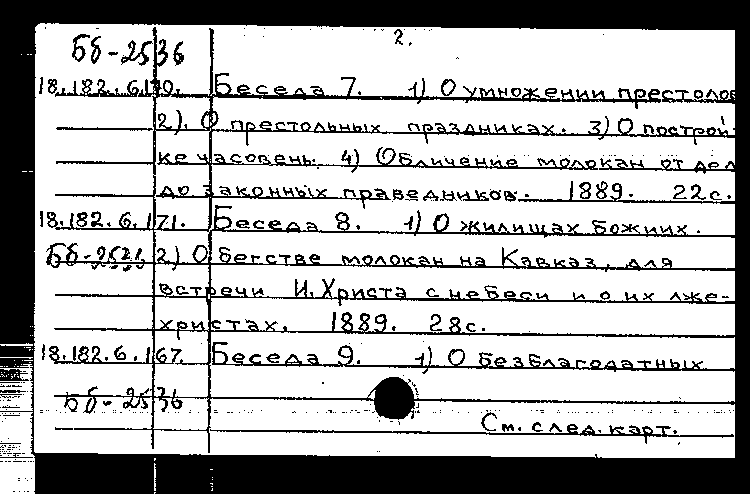 2.
Бб-2536
18.182.6.170. Беседа 7. 1) О умножении престолов
2). О престольных праздниках. 3) О построй-
ке часовень. 4) Обличение молокан от дел
до законных праведников. 1889. 22с.
18.182.6.171. Беседа 8. 1) О жилищах Божиих.
2) О бегстве молокан на Кавказ, для
встречи И.Христа с небеси и о их лже-
христах. 1889. 28с.
18.182.6.167. Беседа 9. 1) О безблагодатных
Бб-2536
См. след. карт.